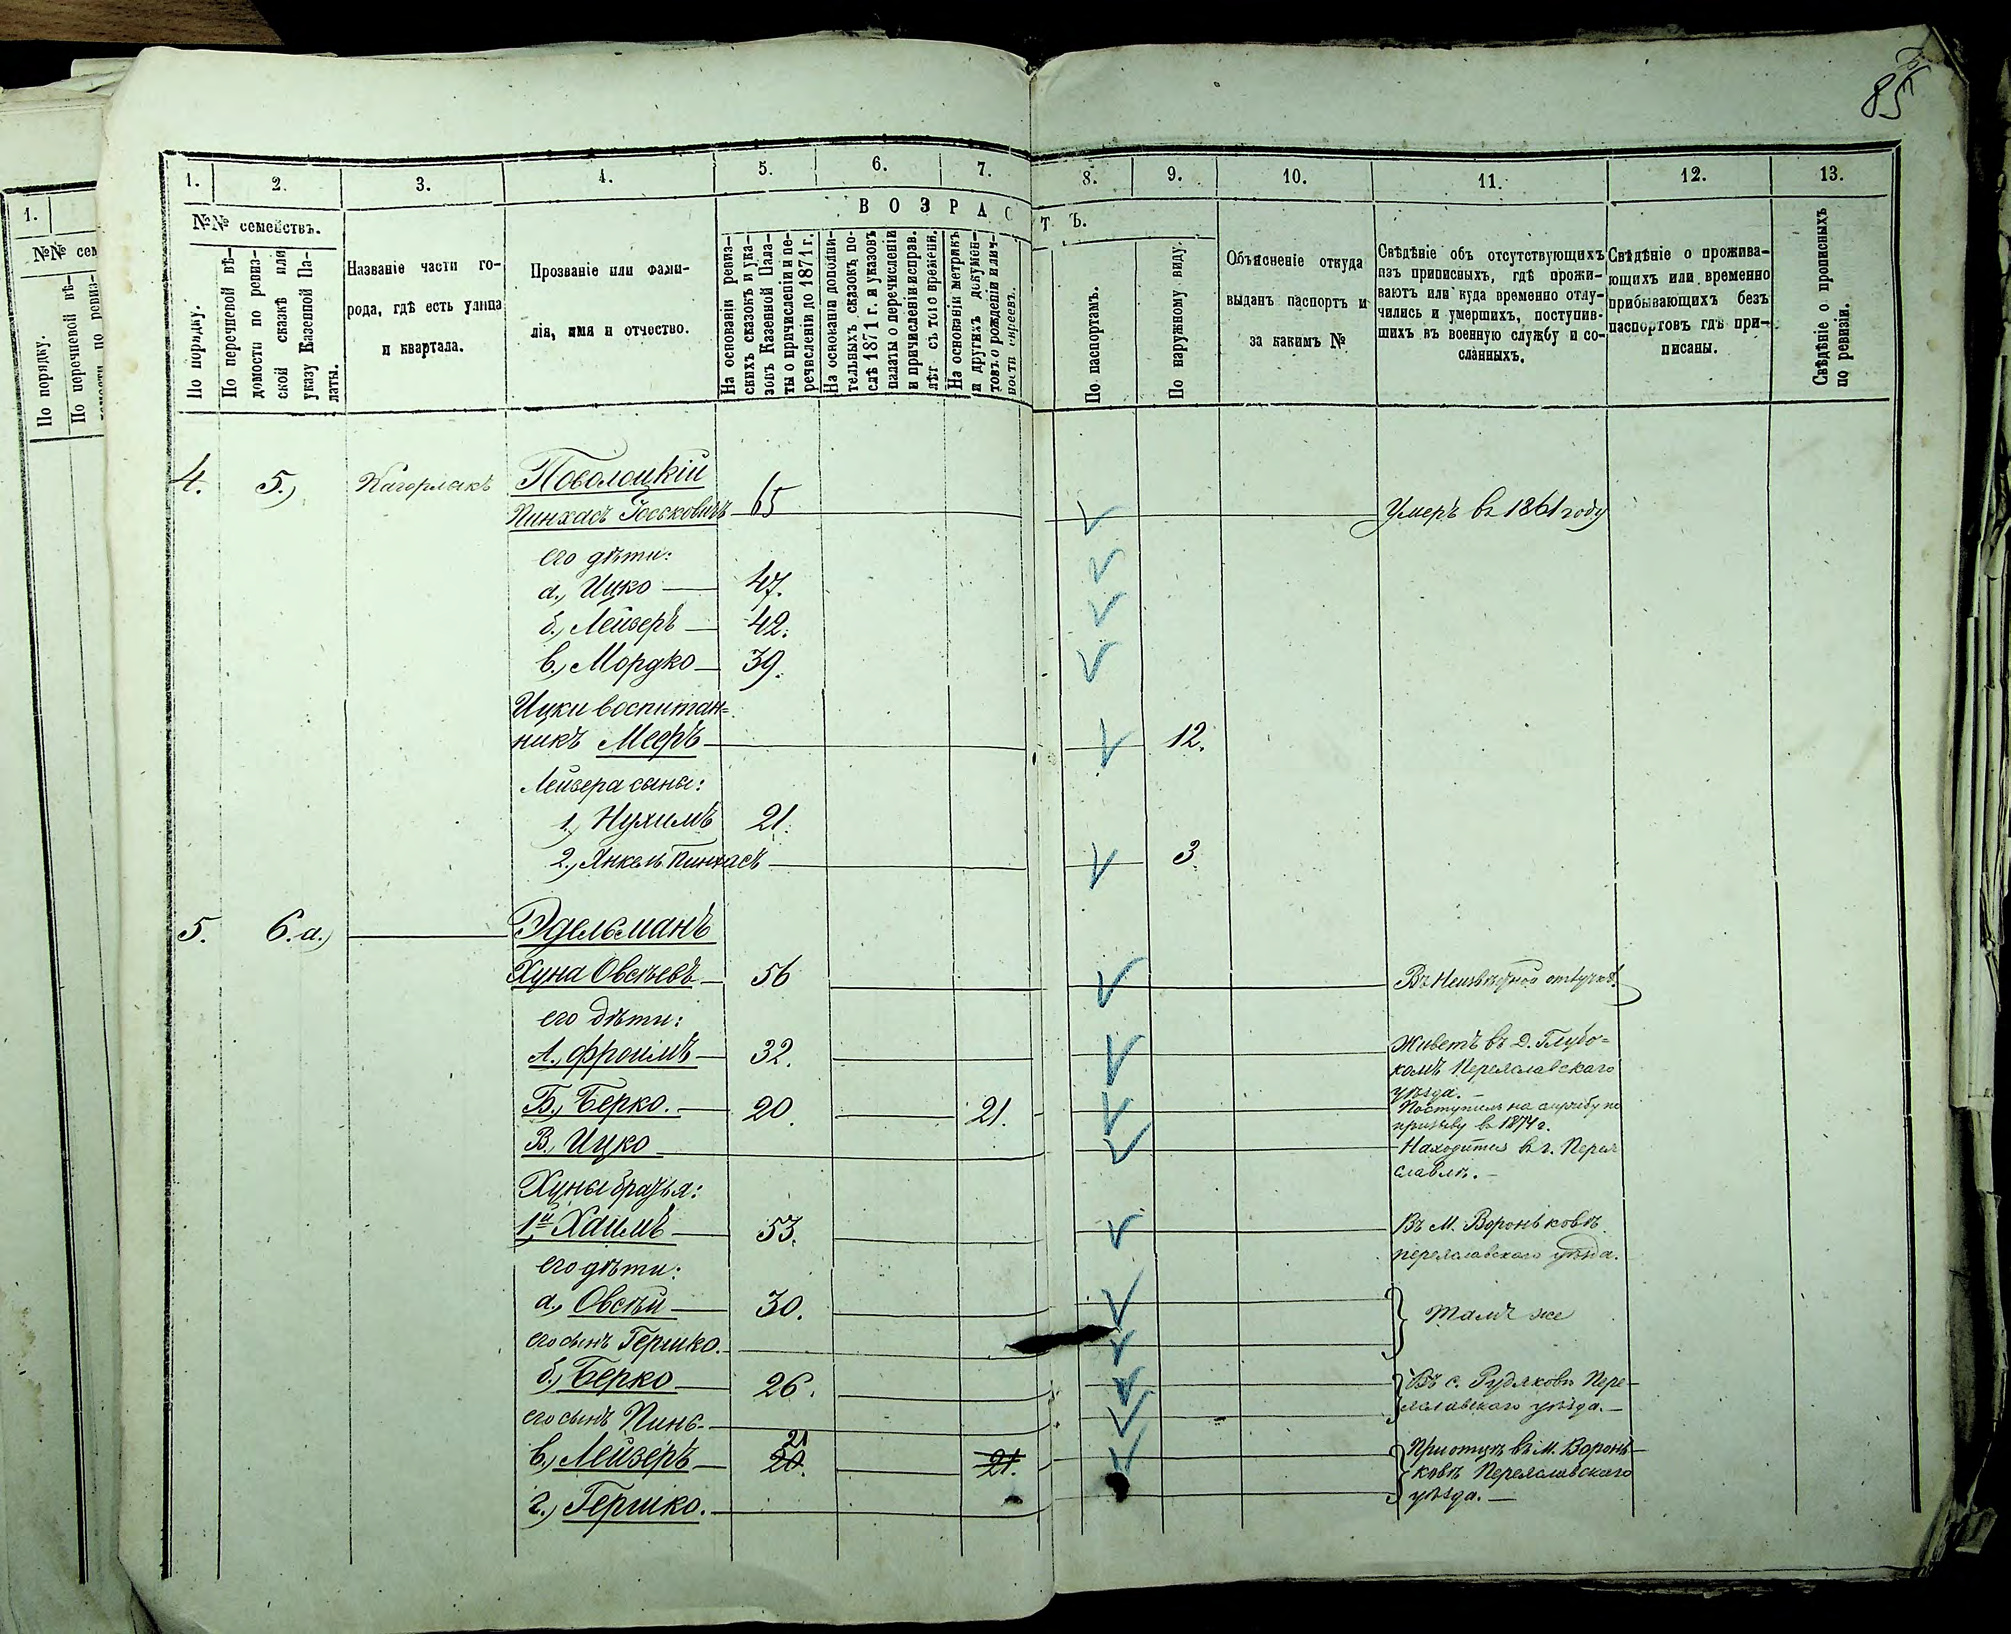 85
1.
№№ сем
По порядку.
По перечневой вѣ-
1. 2. 3. 4. 5. 6. 7. 8. 9. 10. 11. 12. 13.
№№ семействъ.
По порядку.
По перечневой вѣ-
домости по ревиз-
ской сказкѣ или
указу Казенной Па-
латы.
Названіе части го-
рода, гдѣ есть улица
и квартала.
Прозваніе или фами-
лія, имя и отчество.
ВОЗРАСТЪ.
На основаніи ревиз-
скихъ сказокъ и ука-
зовъ Казенной Пала-
ты о причисленіи и пе-
речисленіи до 1871 г.
На основаніи дополни-
тельныхъ сказокъ по-
слѣ 1871 г. и указовъ
палаты о перечисленіи
и причисленіи исправ.
лѣт съ того времени.
На основаніи метрикъ
и другихъ докумен-
товъ о рожденіи и лич-
ности евреевъ.
По паспортамъ.
По наружному виду.
Объясненіе откуда
выданъ паспортъ и
за какимъ №
Свѣдѣніе объ отсутствующихъ
изъ приписныхъ, гдѣ прожи-
ваютъ или куда временно отлу-
чились и умершихъ, поступив-
шихъ въ военную службу и со-
сланныхъ.
Свѣдѣніе о прожива-
ющихъ или временно
прибывающихъ безъ
паспортовъ гдѣ при-
писаны.
Свѣдѣніе о прописныхъ
по ревизіи.
4. 5.) Кагорлыкъ Поволоцкій
Пинхасъ Іоськовичъ 65 Умеръ въ 1861 году
его дѣти:
а., Ицко 47.
б., Лейзеръ 42.
в., Мордко 39.
Ицки воспитан=
никъ Мееръ 12.
Лейзера сыны:
1., Нухимъ 21.
2., Янкель Пинхасъ 3.
5. 6.а.) Эдельманъ
Хуна Овсѣевъ 56 Въ Неизвѣстной отлучкѣ.
его дѣти:
А., Фроимъ 32. Живетъ въ д. Глубо=
комъ Переяславскаго
уѣзда.
Б., Берко. 20. 21. Поступилъ на службу по
призыву въ 1874 г.
В., Ицко Находится въ г. Перея
славлѣ.
Хуны братья:
1й Хаимъ 53. Въ М. Вороньковѣ
переяславскаго уѣзда.
его дѣти:
а., Овсѣй 30. Тамъ же
его сынъ Гершко.
б., Берко 26. Въ с. Рудяковѣ Пере-
яславскаго уѣзда.
его сынъ Пинь.
21
в., Лейзеръ 20. 21. При отцѣ въ М. Воронь-
ковѣ Переяславскаго
уѣзда.
г.) Гершко.